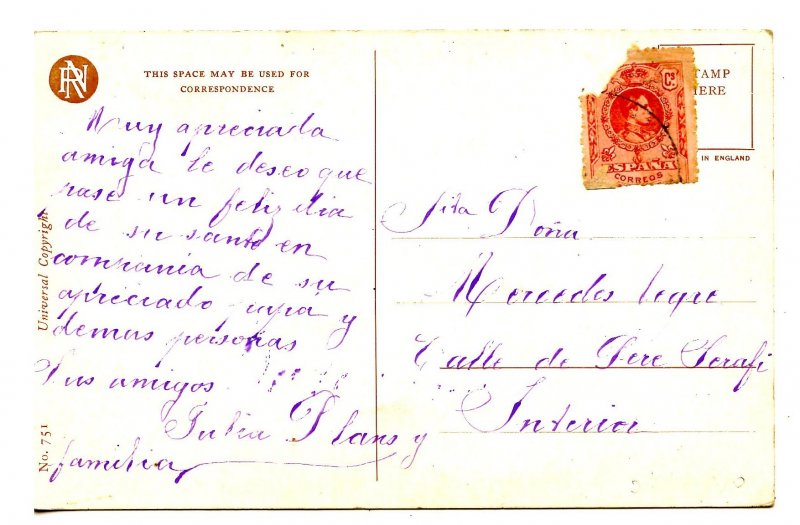 PRN
THIS SPACE MAY BE USED FOR
CORRESPONDENCE
Muy apreciada
amiga le deseo que
pase un feliz dia
de su santo en
comprania de su
apreciado papá y
demas personas
Sus amigos
Julia Plans y
familia
No. 751
Universal Copyright
Cs
ESPAÑA
CORREOS
STAMP
HERE
IN ENGLAND
Srta Doña
Mercedes
Calle de Pere Serafi
Interior